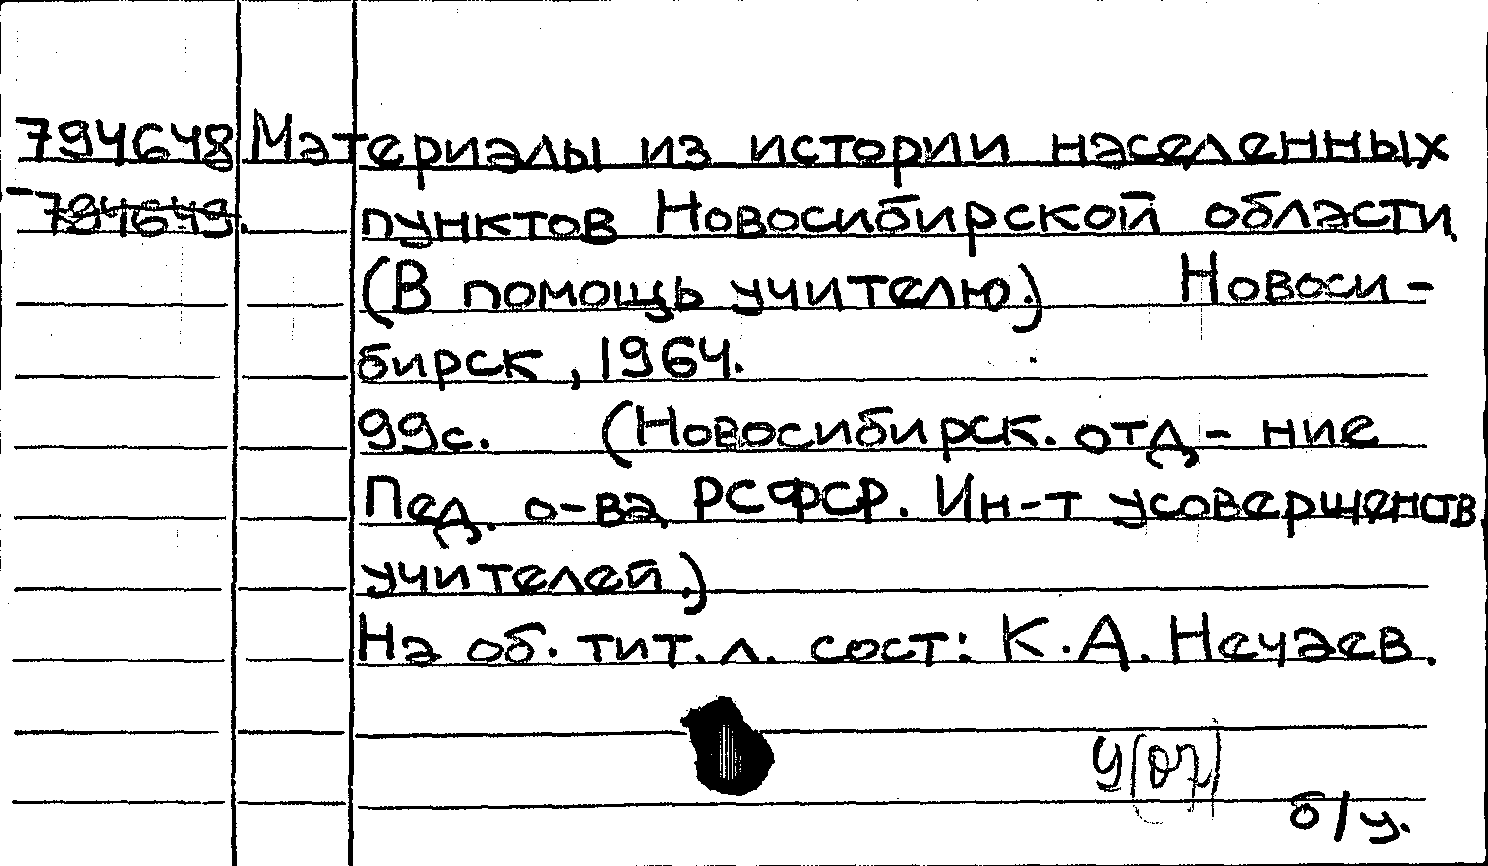 794648 Материалы из истории населенных
-794649. пунктов Новосибирской области
(В помощь учителю.) Новоси-
бирск, 1964.
99с. (Новосибирск. отд-ние
Пед. о-ва РСФСР. Ин-т усовершенств.
учителей.)
На об. тит. л. сост: К.А. Нечаев.
9(07)
б/у.